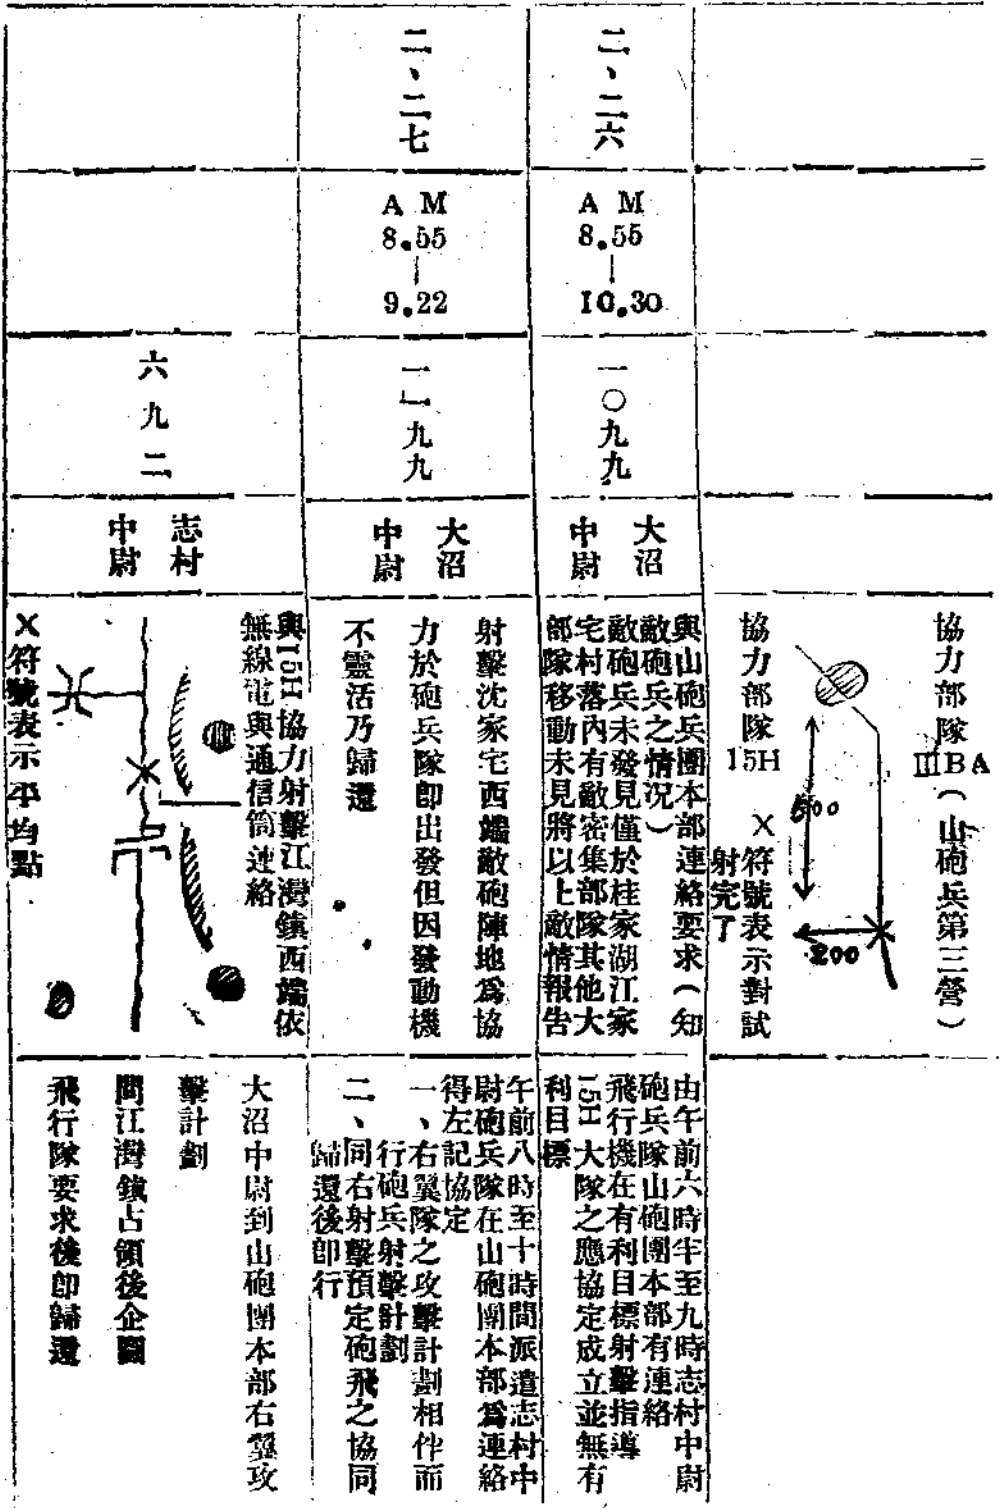 協力部隊ⅢBA(山砲兵第三營)
500
200
協力部隊15H
X符號表示對試
射完了
二、二六
AM
8.55
|
10.30
一〇九九
大沼
中尉
與山砲兵團本部連絡要求(知
敵砲兵之情況)
敵砲兵未發見僅於桂家湖江家
宅村落內有敵密集部隊其他大
部隊移動未見將以上敵情報告
由午前六時半至九時志村中尉
砲兵隊山砲團本部有連絡
飛行機在有利目標射擊指導
15H大隊之應協定成立並無有
利目標
二、二七
AM
8.55
|
9.22
一一九九
大沼
中尉
射擊沈家宅西端敵砲陣地爲協
力於砲兵隊卽出發但因發動機
不靈活乃歸還
午前八時至十時間派遣志村中
尉砲兵隊在山砲團本部爲連絡
得左記協定
一、右翼隊之攻擊計劃相伴而
行砲兵射擊計劃
二、同右射擊預定砲飛之協同
歸還後卽行
六九二
志村
中尉
與15H協力射擊江灣鎮西端依
無線電與通信筒連絡
X符號表示平均點
大沼中尉到山砲團本部右翼攻
擊計劃
問江灣鎮占領後企圖
飛行隊要求後卽歸還